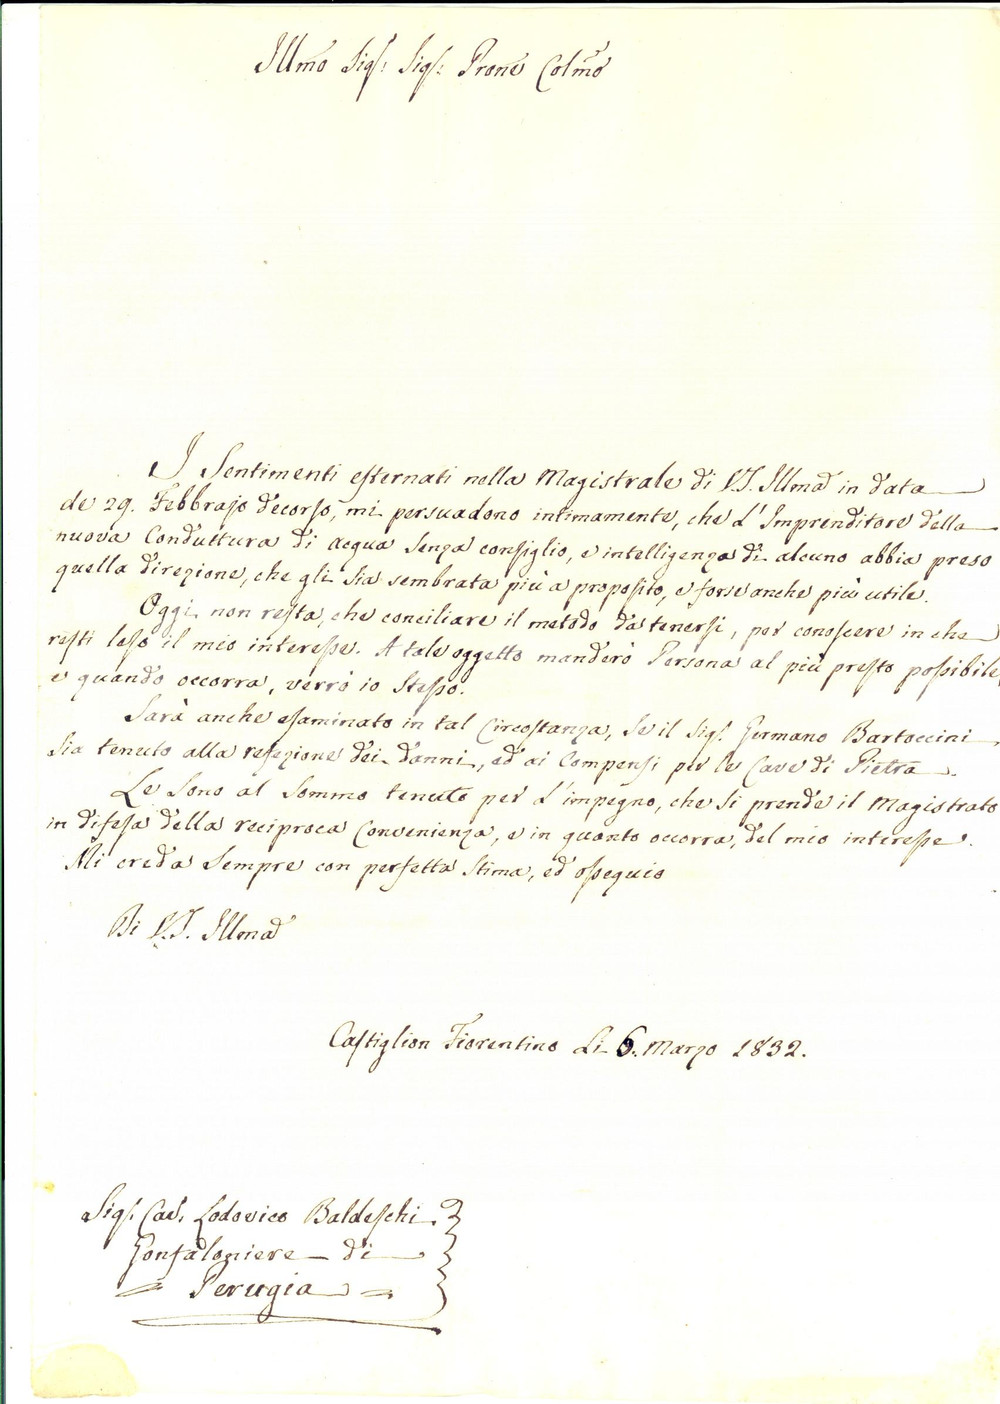 Illmo Sigr: Sigr: Prone Colmo
I Sentimenti esternati nella Magistrale di V.S. Illma in data
de 29. Febbrajo decorso, mi persuadono intimamente, che l'Imprenditore della
nuova Conduttura di acqua senza consiglio, e intelligenza di alcuno abbia preso
quella direzione, che gli sia sembrata più a proposito, e forse anche più utile.
Oggi non resta, che conciliare il metodo da tenersi, per conoscere in che
resti leso il mio interesse. A tale oggetto manderò Persona al più presto possibile,
e quando occorra, verrò io stesso.
Sarà anche esaminato in tal Circostanza, se il Sigr. Germano Bartoccini
sia tenuto alla refezione dei danni, ed ai Compensi per le Cave di Pietra.
Le sono al sommo tenuto per l'impegno, che si prende il Magistrato
in difesa della reciproca Convenienza, e in quanto occorra, del mio interesse.
Mi creda sempre con perfetta stima, ed ossequio
Di V.S. Illma
Castiglion Fiorentino Li 6. Marzo 1832.
Sigr. Cav. Lodovico Baldeschi
Gonfaloniere di
= Perugia =